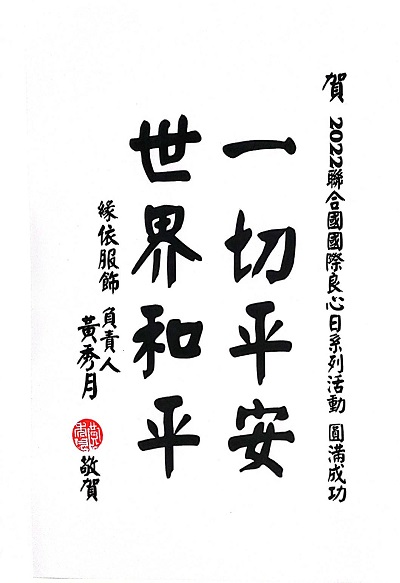 賀 2022聯合國國際良心日系列活動 圓滿成功
一切平安
世界和平
緣依服飾 負責人
黃秀月 敬賀